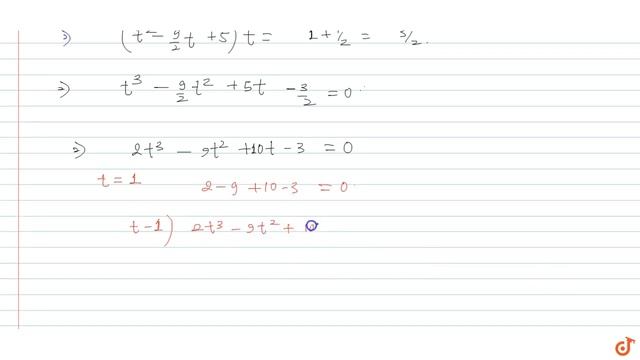 ⇒) (t² - 9/2 t + 5) t = 1 + 1/2 = 5/2.
⇒) t³ - 9/2 t² + 5t - 3/2 = 0
⇒) 2t³ - 9t² + 10t - 3 = 0
t = 1 2 - 9 + 10 - 3 = 0
t - 1) 2t³ - 9t² + 10